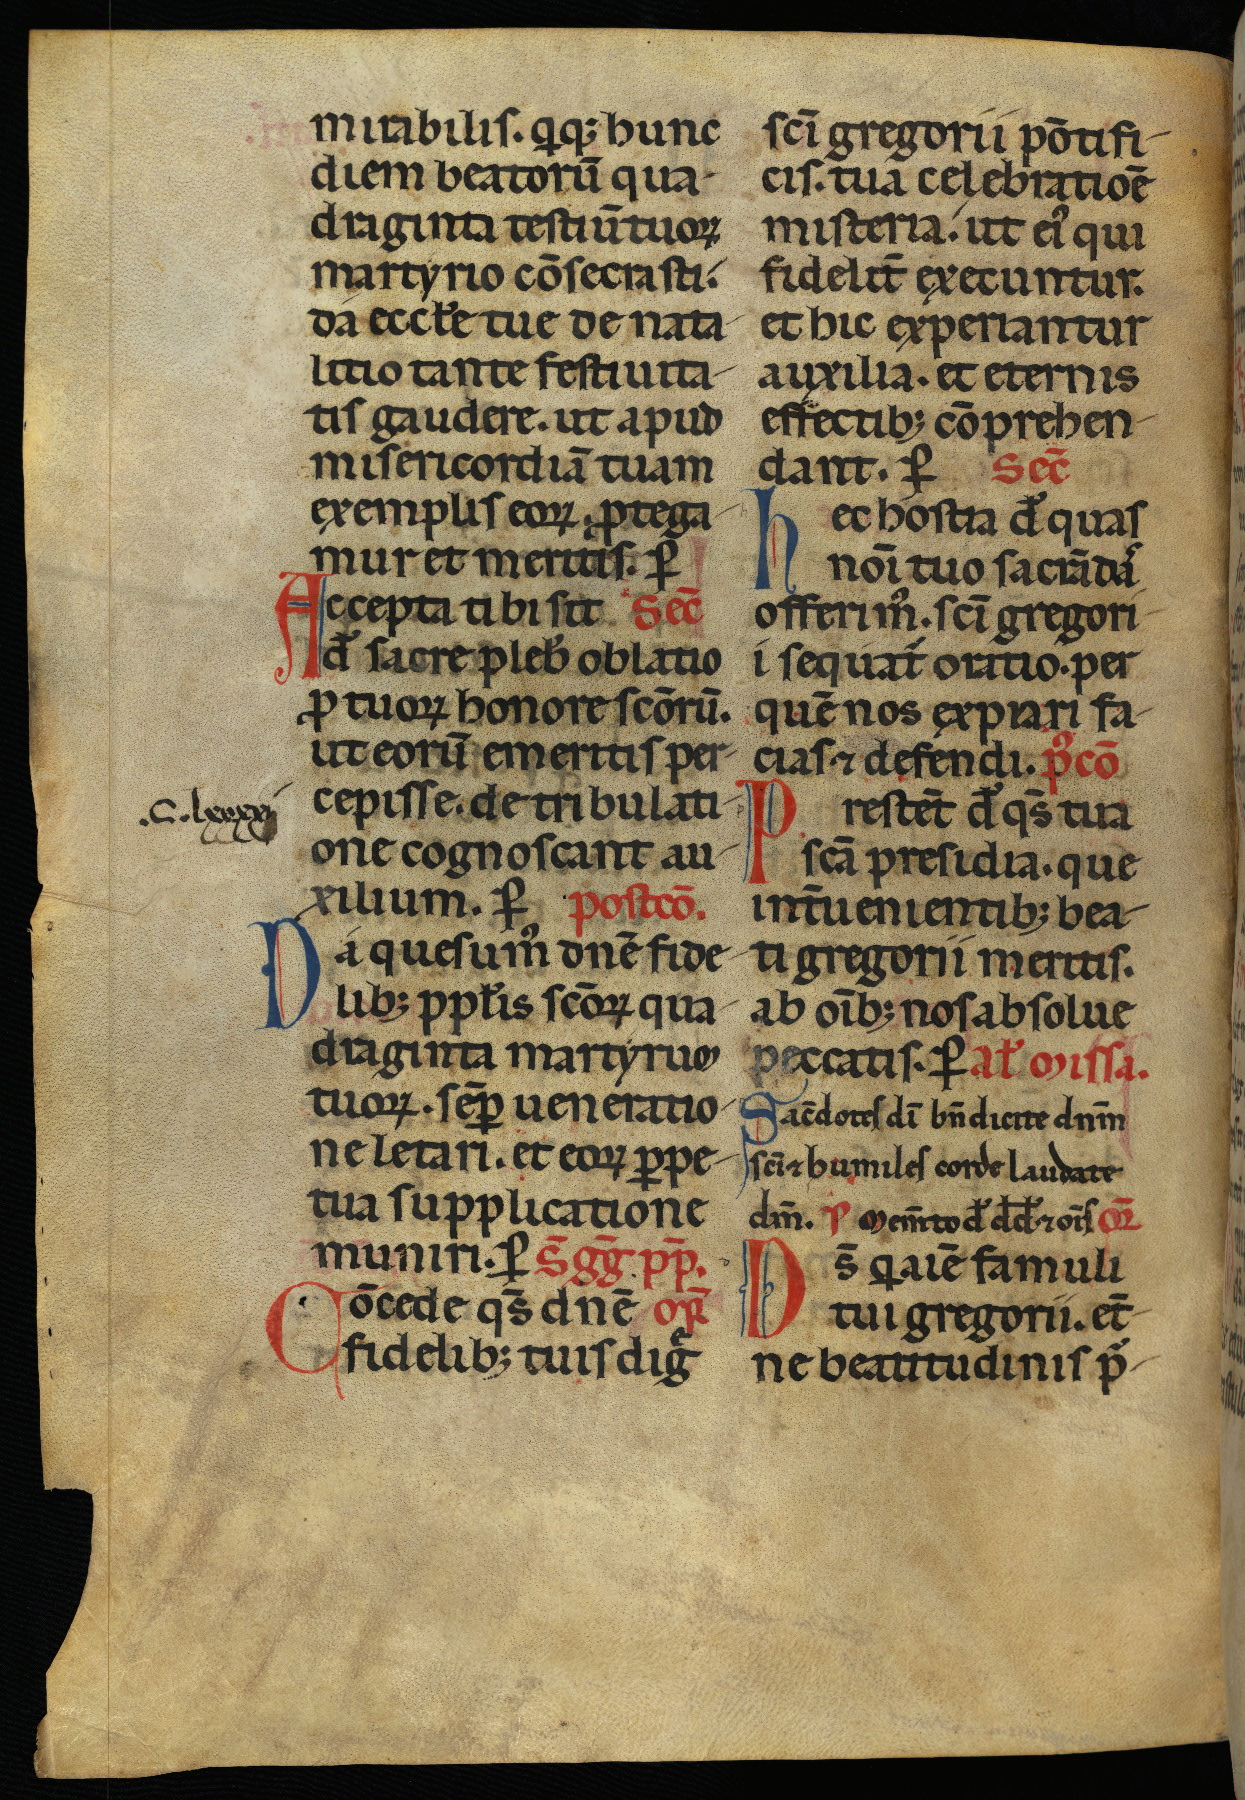 mirabilis. qiq; hunc
diem beatorū qua-
draginta testiū tuoꝝ
martyrio cōsecrasti.
da eccl̄e tue de nata-
litio tante festiuita-
tis gaudere. ut apud
misericordiā tuam
exemplis eoꝝ. ꝓtega-
mur et meritis. ꝑ
Accepta tibi sit Sec̄
d̄s sacre pleb̄ oblatio
ꝓ tuoꝝ honore scōrū.
ut eorū emeritis per-
cepisse. de tribulati-
.C. lxxxxi
one cognoscant au-
xilium. ꝑ postcō.
Da quesum᷒ dn̄e fide-
lib; ppl̄is scōꝝ qua-
draginta martyrum
tuoꝝ. sēꝑ ueneratio-
ne letari. et eoꝝ ꝑpe-
tua supplicatione
muniri. ꝑ S̄ gḡ. pp̄.
Cōcede qs̄ dn̄e or̄
fidelib; tuis dig̃
scī gregorii pōtifi-
cis. tua celebratiōe
misteria. ut ei᷒ qui
fidelit̄ execuntur.
et hic experiantur
auxilia. et eternis
effectib; cōprehen-
dant. ꝑ Sec̄
hec hostia d̄s quas
noī tuo sacrādā
offerim᷒. scī gregori-
i sequat̄ oratio. per
quē nos expiari fa-
cias ⁊ defendi. p᷒cō
Prestēt d̄s qs̄ tua
scā presidia. que
int̄uenientib; bea-
ti gregorii meritis.
ab oīb; nos absolue
peccatis. ꝑ al̄ missa.
Sac̄dotes dī bn̄dicite dnm̄
scī ⁊ humiles corde laudate
dm̄. p̄ Mem̄to d̄s dd̄ ⁊ oīs or̄
Ds̄ q aīe famuli
tui gregorii. et̄-
ne beatitudinis p̄-